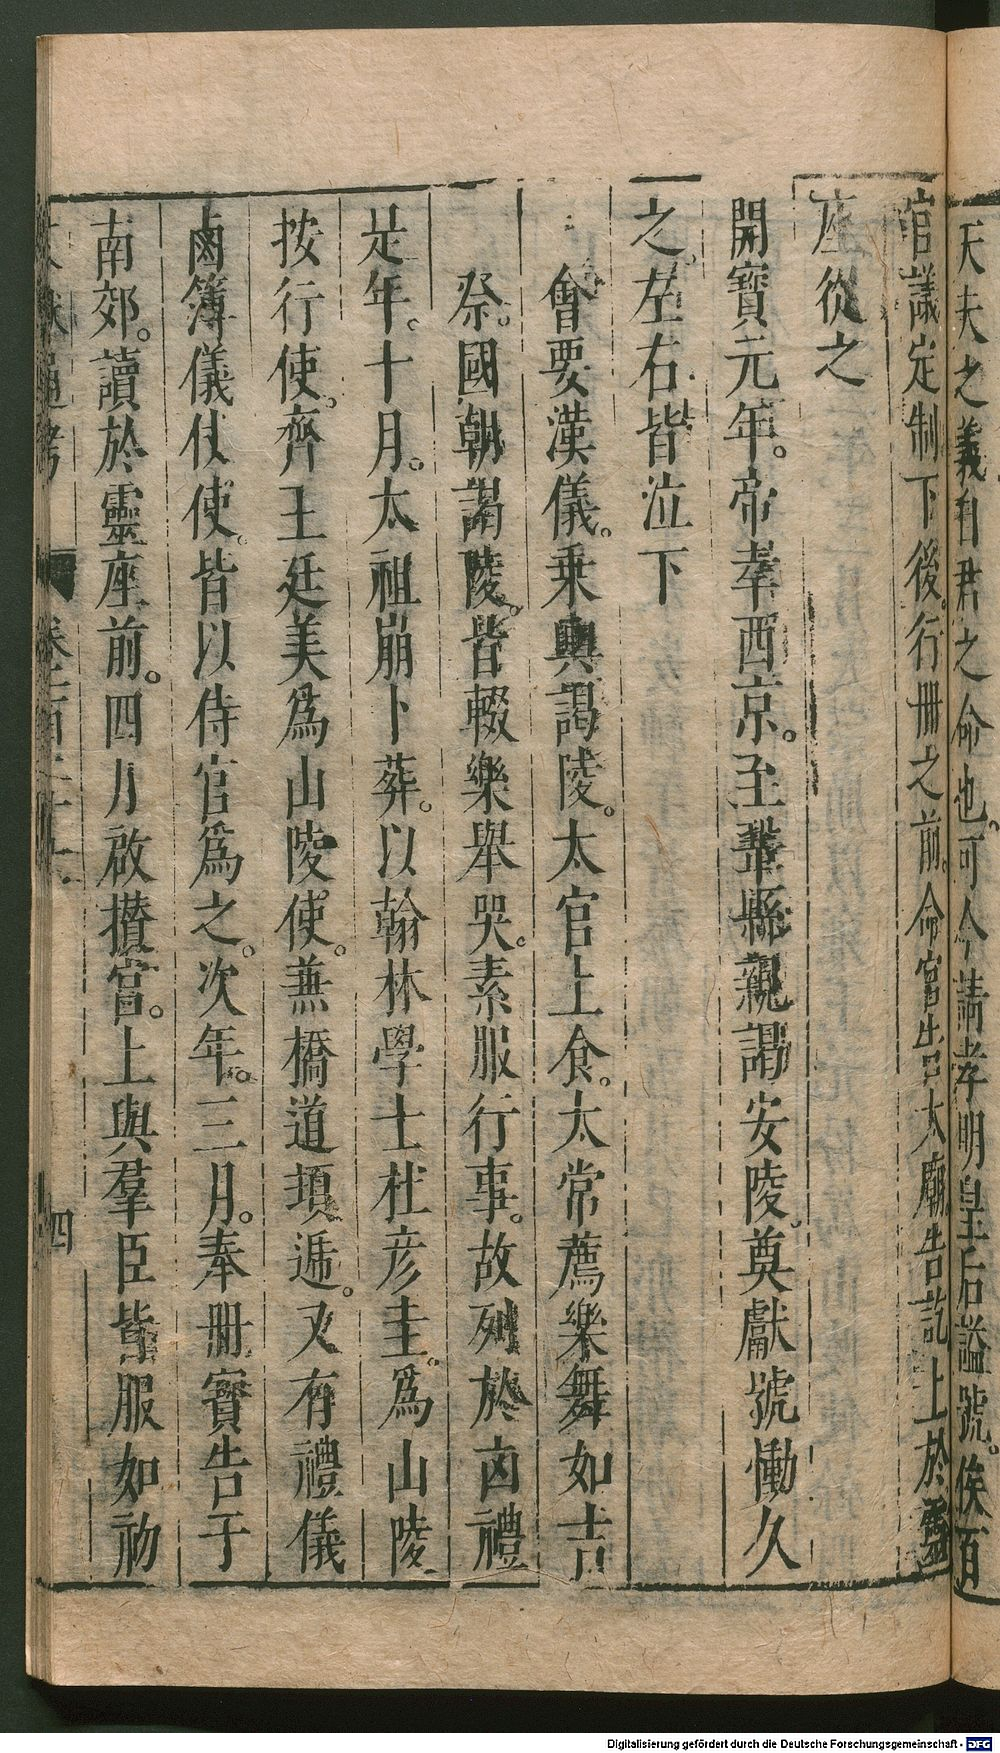 天夫之義自君之命也可令請孝明皇后諡號。俟百
官議定制下後。行冊之前。命宮告太廟告訖上於靈
座從之
開寶元年。帝幸西京。至鞏縣親謁安陵。奠獻號慟久
之。左右皆泣下
會要漢儀。乘輿謁陵。太官上食。太常薦樂舞如吉
祭。國朝謁陵。皆輟樂舉哭。素服行事。故列於凶禮
是年。十月。太祖崩卜葬。以翰林學士杜彥圭。爲山陵
按行使。齊王廷美爲山陵使。兼橋道頓遞。又有禮儀
鹵簿儀仗使。皆以侍官爲之。次年。三月。奉冊寶告于
南郊。讀於靈座前。四月啟攢宮。上與羣臣皆服如初
文獻通考 卷一百二十 四
Digitalisierung gefördert durch die Deutsche Forschungsgemeinschaft - DFG